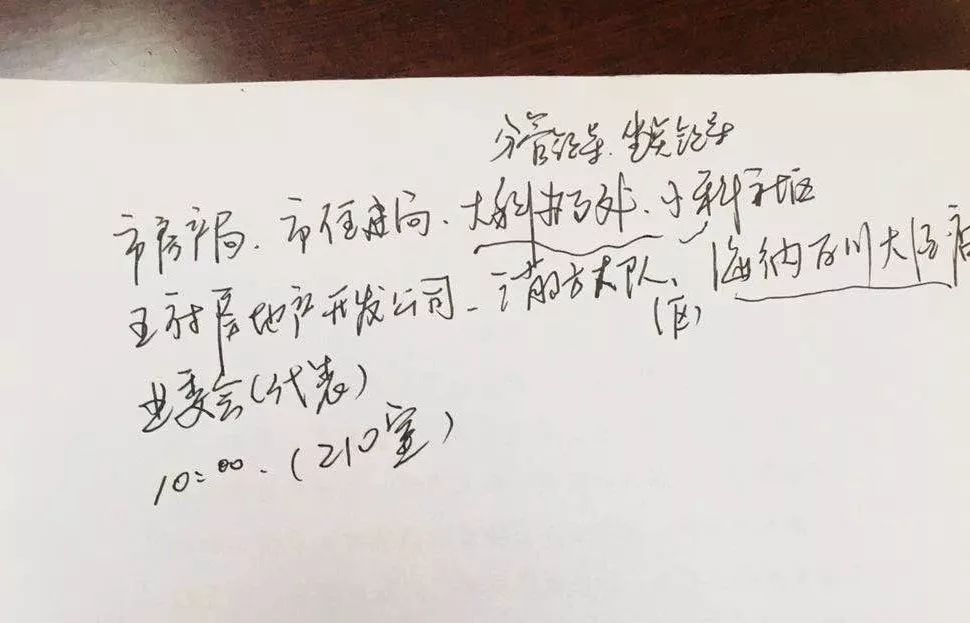 分管领导、坐片领导
市房产局、市住建局、大科办事处、小科社区
王村房地产开发公司、消防大队、海纳百川大酒店
(区)
业委会(代表)
10:00.(210室)